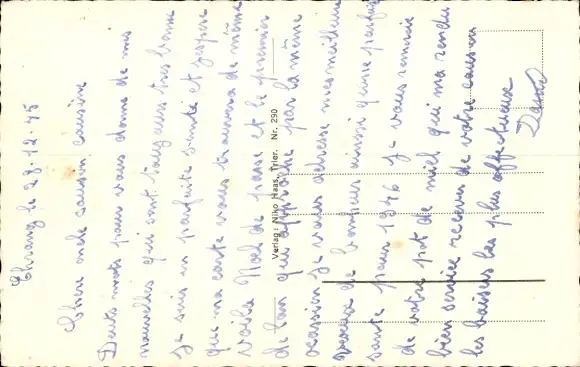 Ehrang le 28.12.45
Chère oncle cousin cousine
Deuts mots pour vous donne de mes
nouvelles qui sont toujours très bonne
Je suis en parfaite santé et j'espère
que ma carte vous trouvera de même
Voila Noël de passé et le premier
de l'an qui approche par la même
ocassion je vous adresse mes meilleurs
vœux de bonheur ainsi qu'une parfaite
santé pour 1946 je vous remercie
de votre pot de miel qui ma rendu
bien service recevez de votre cousin
les baisers les plus affectueux
Verlag: Niko Haas, Trier. Nr. 290